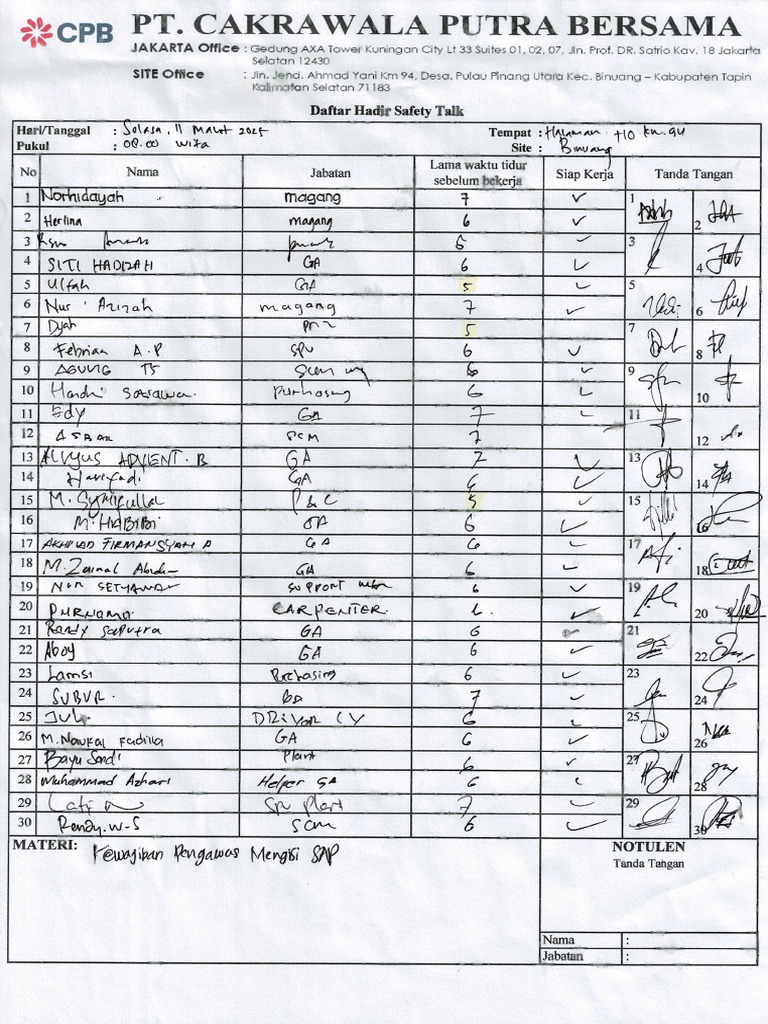 CPB
PT. CAKRAWALA PUTRA BERSAMA
JAKARTA Office : Gedung AXA Tower Kuningan City Lt 33 Suites 01, 02, 07, Jln. Prof. DR. Satrio Kav. 18 Jakarta
Selatan 12430
SITE Office : Jln. Jend. Ahmad Yani Km 94, Desa. Pulau Pinang Utara Kec. Binuang – Kabupaten Tapin
Kalimatan Selatan 71183
Daftar Hadir Safety Talk
Hari/Tanggal : Selasa, 11 Maret 2025 Tempat : Halaman HO km.94
Pukul : 08.00 wita Site : Binuang
No Nama Jabatan Lama waktu tidur sebelum bekerja Siap Kerja Tanda Tangan
1 Norhidayah magang 7 ✓ 1
2 Herlina magang 6 ✓ 2
3 6 ✓ 3
4 SITI HADIZAH GA 6 ✓ 4
5 Ulfah GA 5 ✓ 5
6 Nur Azizah magang 7 ✓ 6
7 Dyah 5 7
8 Febrian A.P SPV 6 ✓ 8
9 AGUNG TS 6 ✓ 9
10 Handri Purhasing 6 ✓ 10
11 Edy GA 7 ✓ 11
12 SCM 7 12
13 ALIYUS ADVIENT. B GA 7 ✓ 13
14 Hariyadi GA 6 ✓ 14
15 M. Syaifullah P&C 5 ✓ 15
16 M. HABIBI GA 6 ✓ 16
17 AKHMAD FIRMANSYAH A GA 6 ✓ 17
18 M. Zainal Abidin GA 6 ✓ 18
19 NUR SETYAWAN SUPPORT 6 ✓ 19
20 PURNOMO CARPENTER 6. ✓ 20
21 Rendy Saputra GA 6 ✓ 21
22 Aboy GA 6 ✓ 22
23 Lamsi Purchasing 6 ✓ 23
24 SUBUR. 7 ✓ 24
25 Jul DRIVER LV 6 ✓ 25
26 M. Naufal Fadilla GA 6 ✓ 26
27 Bayu Sandi Plant 6 ✓ 27
28 Muhammad Azhari Helper GA 6 ✓ 28
29 Plant 7 ✓ 29
30 Rendy. W-S SCM 6 ✓ 30
MATERI: Kewajiban Pengawas Mengisi SAP
NOTULEN
Tanda Tangan
Nama :
Jabatan :